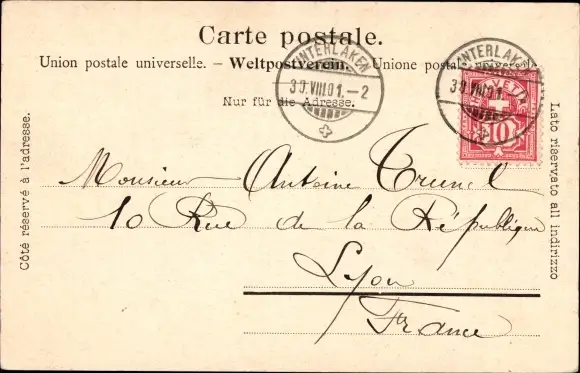 Carte postale.
Union postale universelle. – Weltpostverein. – Unione postale universale.
Nur für die Adresse.
INTERLAKEN
30.VIII.01.–2
INTERLAKEN
30.VIII.01.
HELVETIA
10
Côté réservé à l'adresse.
Lato riservato all indirizzo
Monsieur Antoine
10 Rue de la République
Lyon
France